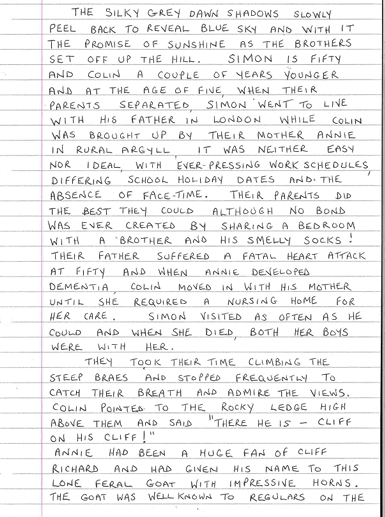 THE SILKY GREY DAWN SHADOWS SLOWLY
PEEL BACK TO REVEAL BLUE SKY AND WITH IT
THE PROMISE OF SUNSHINE AS THE BROTHERS
SET OFF UP THE HILL. SIMON IS FIFTY
AND COLIN A COUPLE OF YEARS YOUNGER
AND AT THE AGE OF FIVE, WHEN THEIR
PARENTS SEPARATED, SIMON WENT TO LIVE
WITH HIS FATHER IN LONDON WHILE COLIN
WAS BROUGHT UP BY THEIR MOTHER ANNIE
IN RURAL ARGYLL. IT WAS NEITHER EASY
NOR IDEAL, WITH EVER-PRESSING WORK SCHEDULES,
DIFFERING SCHOOL HOLIDAY DATES AND THE
ABSENCE OF FACE-TIME. THEIR PARENTS DID
THE BEST THEY COULD ALTHOUGH NO BOND
WAS EVER CREATED BY SHARING A BEDROOM
WITH A BROTHER AND HIS SMELLY SOCKS!
THEIR FATHER SUFFERED A FATAL HEART ATTACK
AT FIFTY AND WHEN ANNIE DEVELOPED
DEMENTIA, COLIN MOVED IN WITH HIS MOTHER
UNTIL SHE REQUIRED A NURSING HOME FOR
HER CARE. SIMON VISITED AS OFTEN AS HE
COULD AND WHEN SHE DIED, BOTH HER BOYS
WERE WITH HER.
THEY TOOK THEIR TIME CLIMBING THE
STEEP BRAES AND STOPPED FREQUENTLY TO
CATCH THEIR BREATH AND ADMIRE THE VIEWS.
COLIN POINTED TO THE ROCKY LEDGE HIGH
ABOVE THEM AND SAID "THERE HE IS - CLIFF
ON HIS CLIFF!"
ANNIE HAD BEEN A HUGE FAN OF CLIFF
RICHARD AND HAD GIVEN HIS NAME TO THIS
LONE FERAL GOAT WITH IMPRESSIVE HORNS.
THE GOAT WAS WELL KNOWN TO REGULARS ON THE